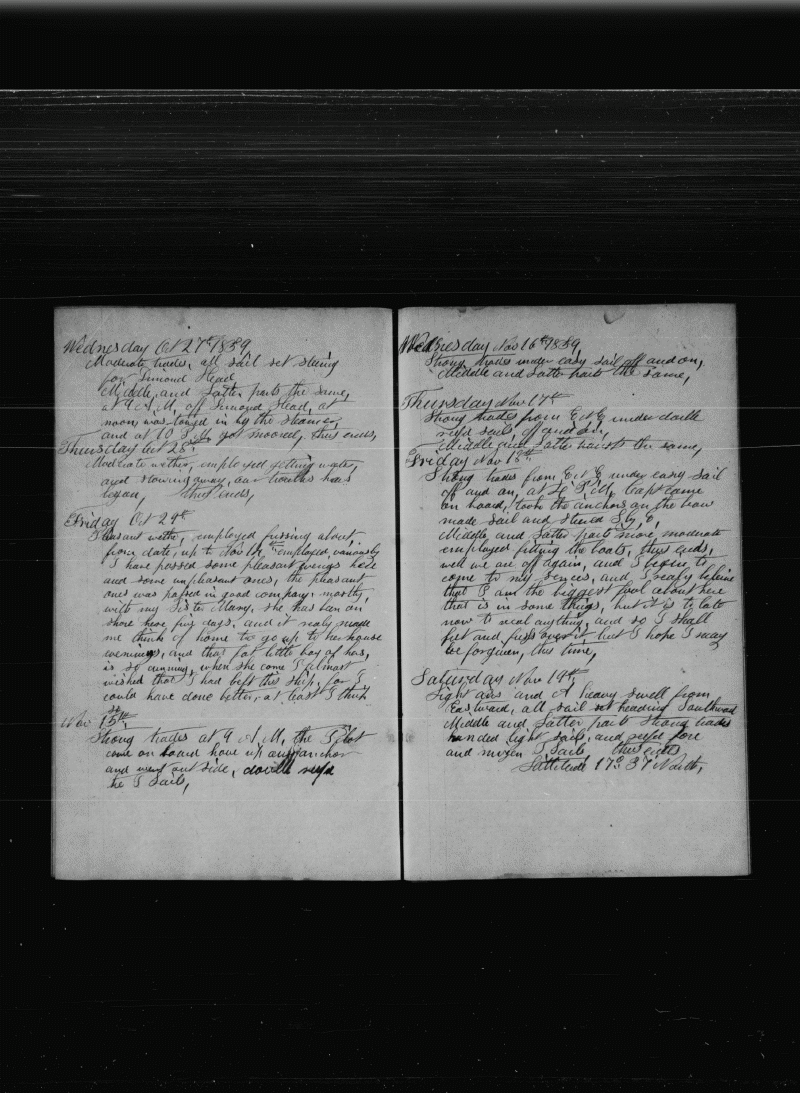 Wednesday Oct 27th 1859
Moderate trades, all sail set stering
for Dimond Head
Middle, and Latter parts the same,
at 9 A.M. off Dimond Head, at
noon, was towed in by the steamer,
and at 10 P.M. got moored, thus ends,
Thursday Oct 28th
Moderate wether, employed getting water,
and stowing away, our troubles has
began, thus ends,
Friday Oct 29th
Pleasant wether, employed fussing about,
from date, up to Nov 14th employed, variously
I have passed some pleasant evengs here
and some unpleasant ones, the pleasant
ones was passed in good company, mostly,
with my Sister Mary, she has ben on
shore here five days, and it realy made
me think of home to go up to her house
evenings, and that fat little boy of hers,
is so cunning, when she come I almost
wished that I had left this ship, for I
could have done better, at least I think
so
Nov 15th
Strong trades at 9 A.M, the Pilot
come on board hove up our anchor
and went out side, double reefd
the T Sails,
Wednesday Nov 16th 1859,
Strong trades under easy sail off and on,
Middle and Latter parts the same,
Thursday Nov 17th
Strong trades from E N E under double
reefd sails off and on,
Middle and Latter parts the same,
Friday Nov 18th
Strong trades from E N E, under easy sail
off and on, at 4 P.M. Capt came
on board, took the anchors on the bow
made sail and sterd S, by, E,
Middle and Latter parts more moderate
employed fitting the boats, thus ends,
well we are off again, and I begin to
come to my sences, and I realy believe
that I am the biggest fool about here
that is in some things, but it is to late
now to recal anything, and so I shall
fret and fuss over it but I hope I may
be forgiven, this time,
Saturday Nov 19th
Light airs and A heavy swell from
Eastward, all sail set heading Southward
Middle and Latter parts strong trades
handed light sails, and reefd fore
and mizen T Sails, thus ends
Lattitude 17° 37 North,